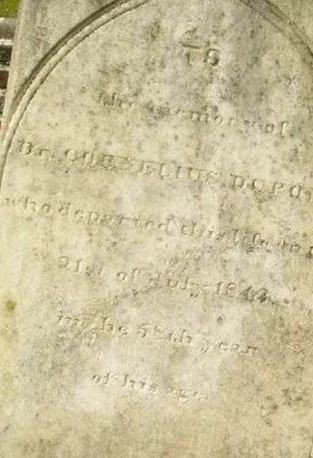 TO
the memory of
Dr. CORNELIUS DUPO
who departed this life
21st of July, 1844
in the 58th year
of his age